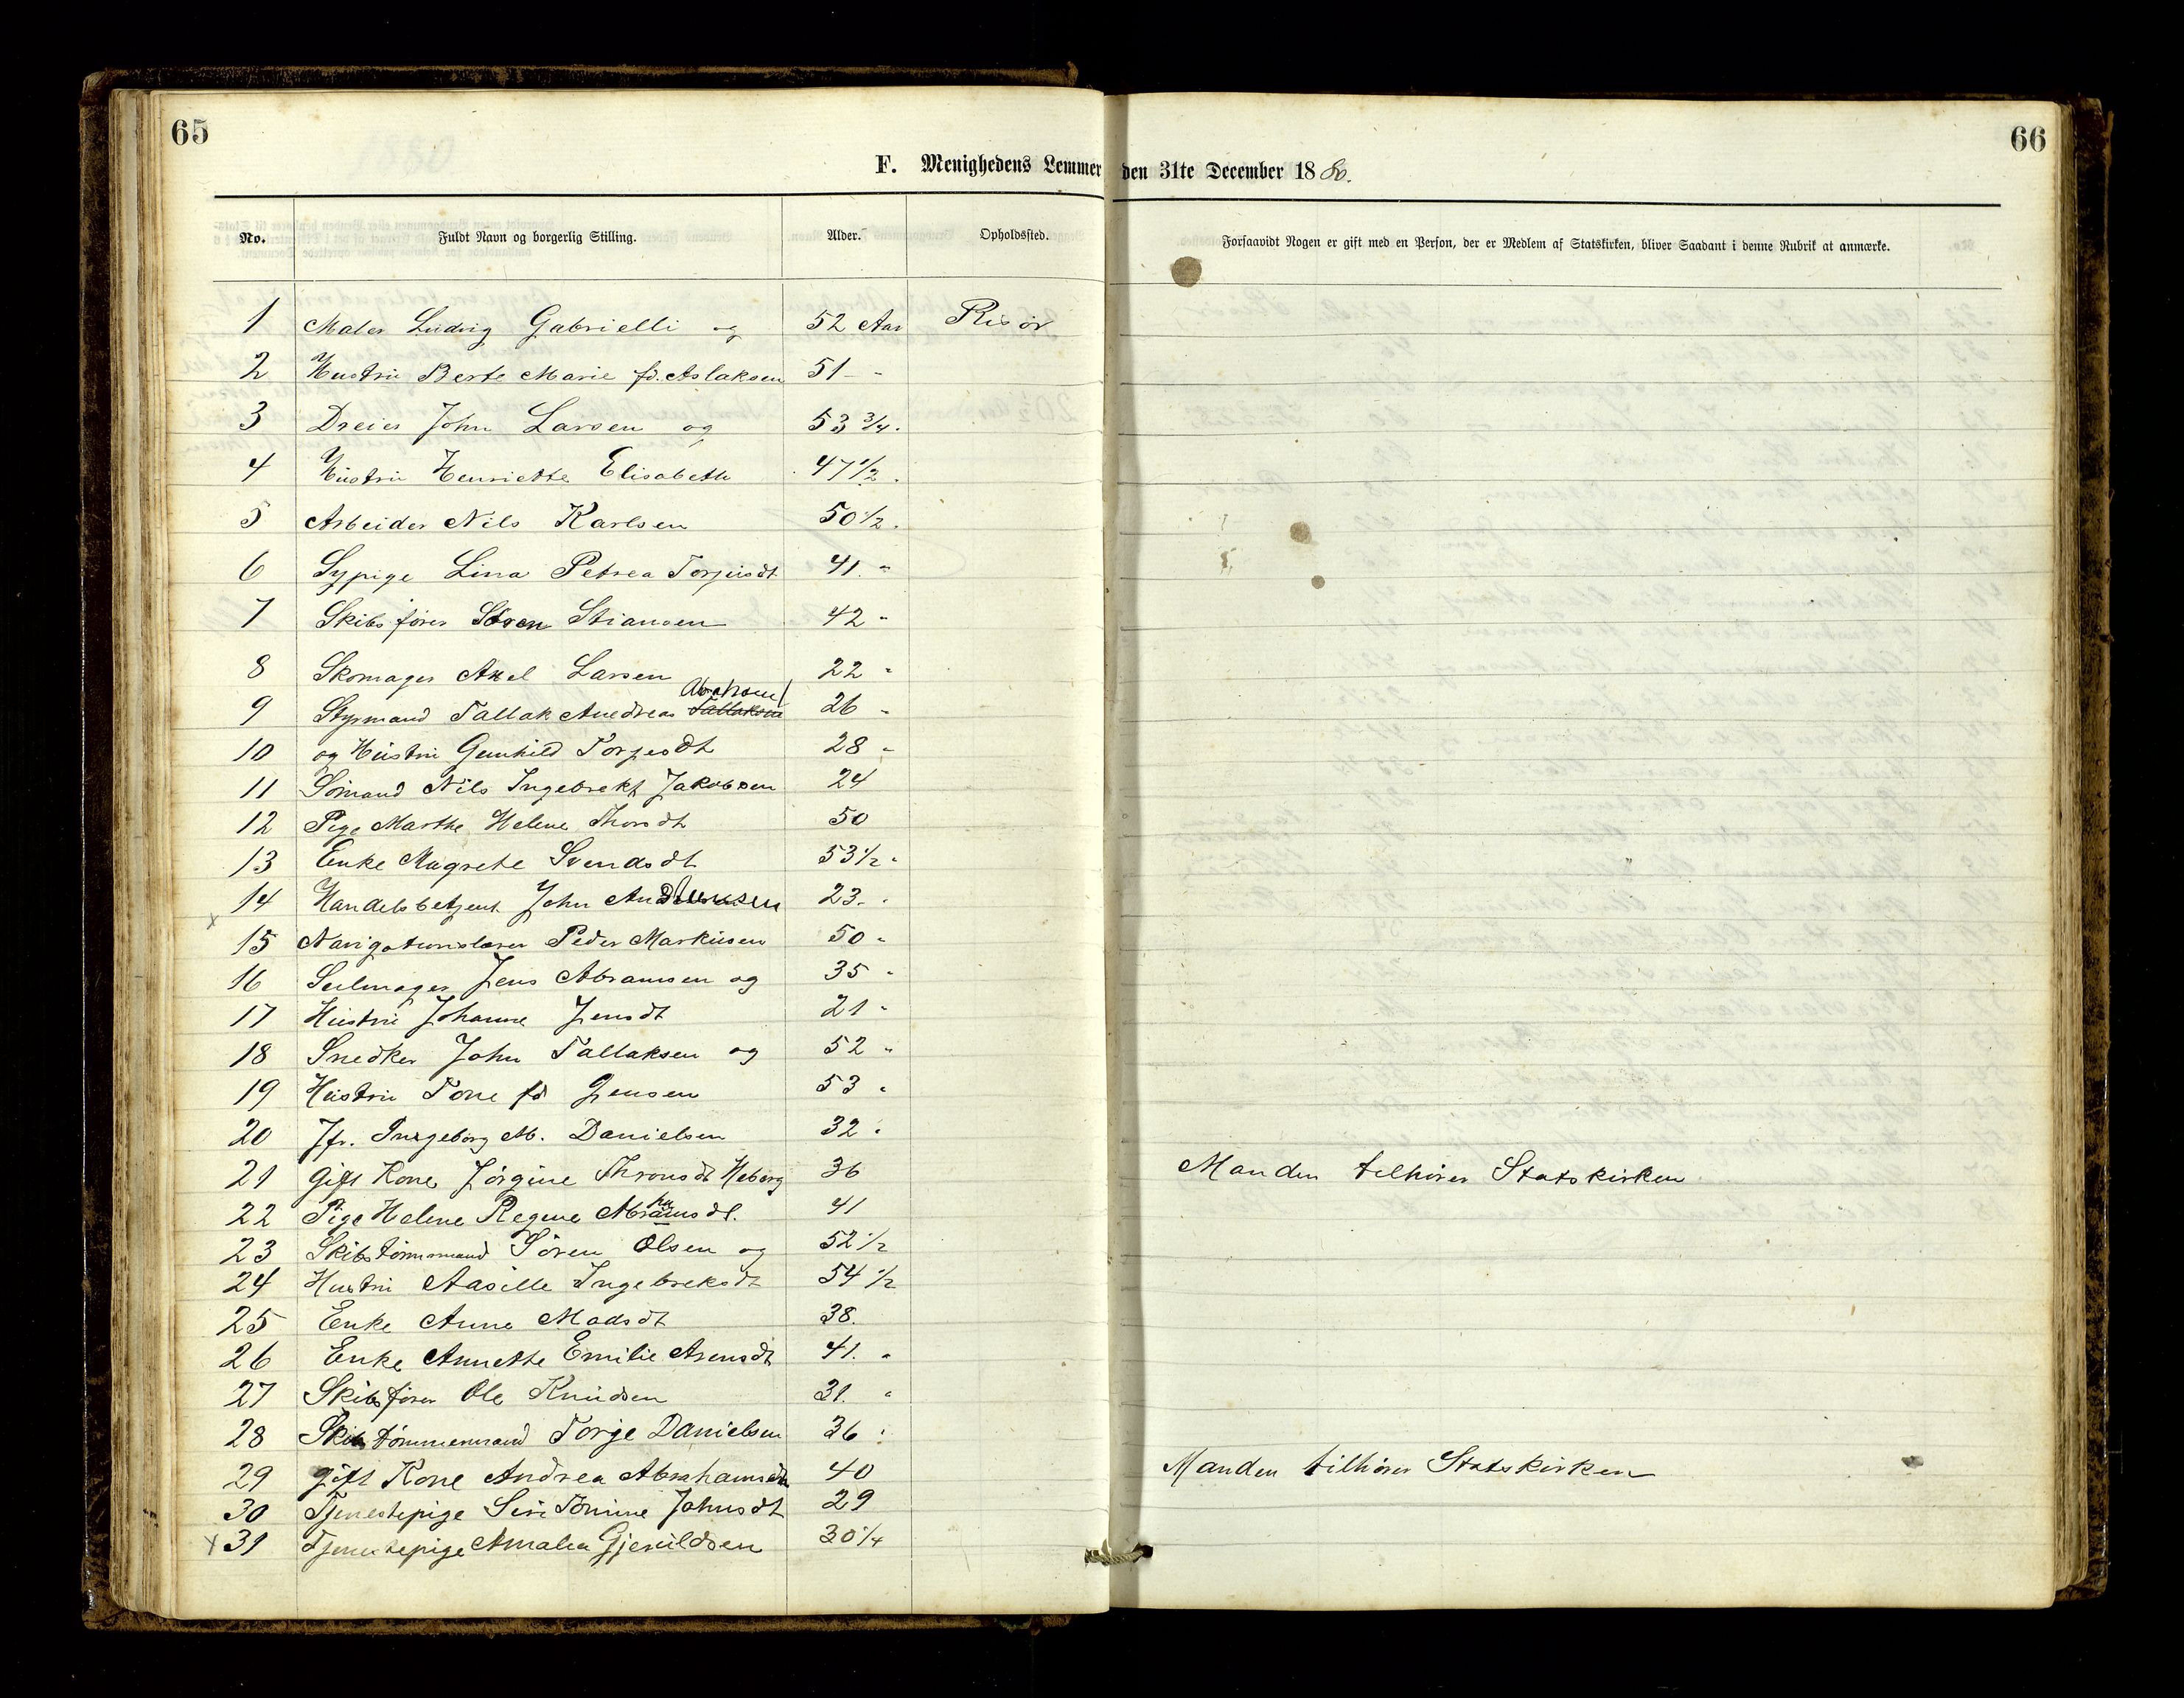 65
66
F. Menighedens Lemmer den 31te December 1880.
No. Fuldt Navn og borgerlig Stilling. Alder. Opholdssted. Forsaavidt Nogen er gift med en Person, der er Medlem af Statskirken, bliver Saadant i denne Rubrik at anmærke.
1 Maler Ludvig Gabrielli og 52 Aar Risør
2 Hustru Berte Marie fd. Aslaksen 51 - "
3 Dreier John Larsen og 53 3/4 "
4 Hustru Henriette Elisabeth 47 1/2 "
5 Arbeider Nils Karlsen 50 1/2 "
6 Sypige Lina Petrea Torjusdt 41 "
7 Skibsfører Søren Stiansen 42 "
8 Skomager Axel Larsen 22 "
9 Styrmand Tallak Andreas Tallaksen Abrahsen 26 "
10 og Hustru Gunhild Torjesdt 28 "
11 Sömand Nils Ingebrekt Jakobsen 24
12 Pige Marthe Helene Thorsdt 50
13 Enke Magrete Svendsdt 53 1/2 "
14 Handelsbetjent John 23 "
x
15 Navigationslærer Peder Markusen 50 "
16 Seilmager Jens Abramsen og 35 "
17 Hustru Johanne Jensdt 21 "
18 Snedker John Tallaksen og 52 "
19 Hustru Tone fd Jensen 53 "
20 Jfr. Ingeborg M. Danielsen 32 "
21 Gift Kone Jörgine Thronsdt Heborg 36 Manden tilhører Statskirken
22 Pige Helene Regine Abrahamsdt. 41
23 Skibstömmermand Sören Olsen og 52 1/2
24 Hustru Aasille Ingebreksdt 54 1/2
25 Enke Anne Madsdt 38.
26 Enke Annette Emilie Arensdt 41. "
27 Skibsfører Ole Knudsen 31. "
28 Skibstømmermand Torje Danielsen 36 "
29 gift Kone Andrea Abrahamsdt 40 Manden tilhører Statskirken
30 Tjenestepige Siri Tomine Johnsdt 29
x 31 Tjenestepige Amalia Gjeruldsen 30 1/4